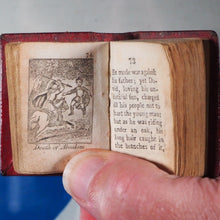 72
Death of Absalom
73
he made war against
his father; yet Da-
vid, loving his un-
dutiful son, charged
all his people not to
hurt the young man:
but as he was riding
under an oak, his
long hair caught in
the branches of it,